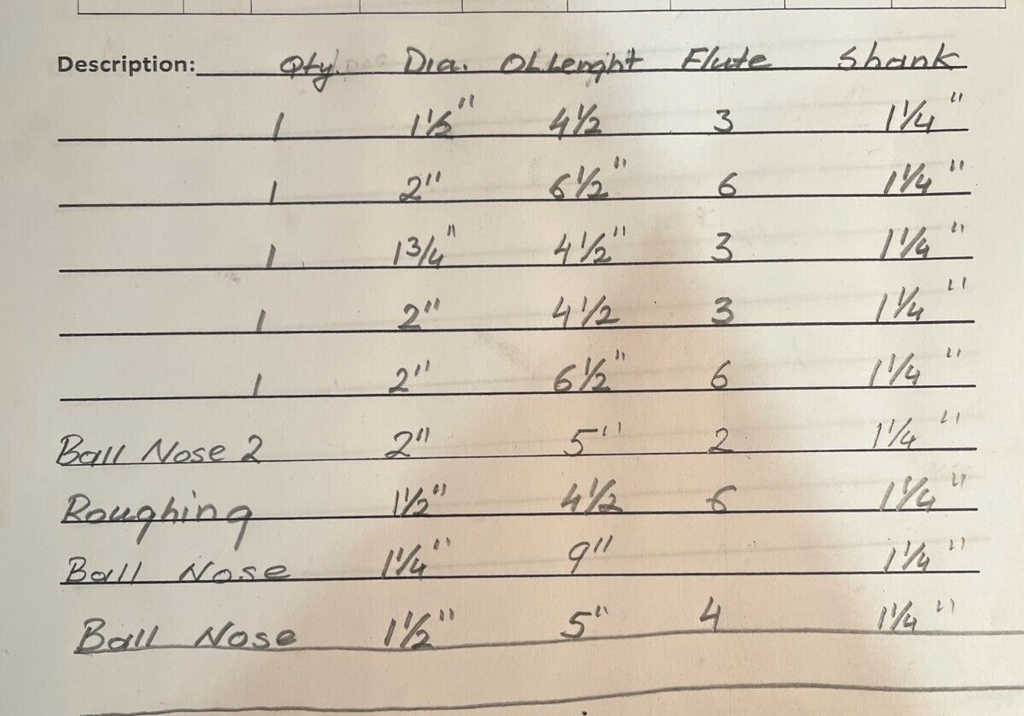 Description: Qty. Dia. OLLenght Flute Shank
1 1½" 4½ 3 1¼"
1 2" 6½" 6 1¼"
1 1¾" 4½" 3 1¼"
1 2" 4½ 3 1¼"
1 2" 6½" 6 1¼"
Ball Nose 2 2" 5" 2 1¼"
Roughing 1½" 4½ 6 1¼"
Ball Nose 1¼" 9" 1¼"
Ball Nose 1½" 5" 4 1¼"